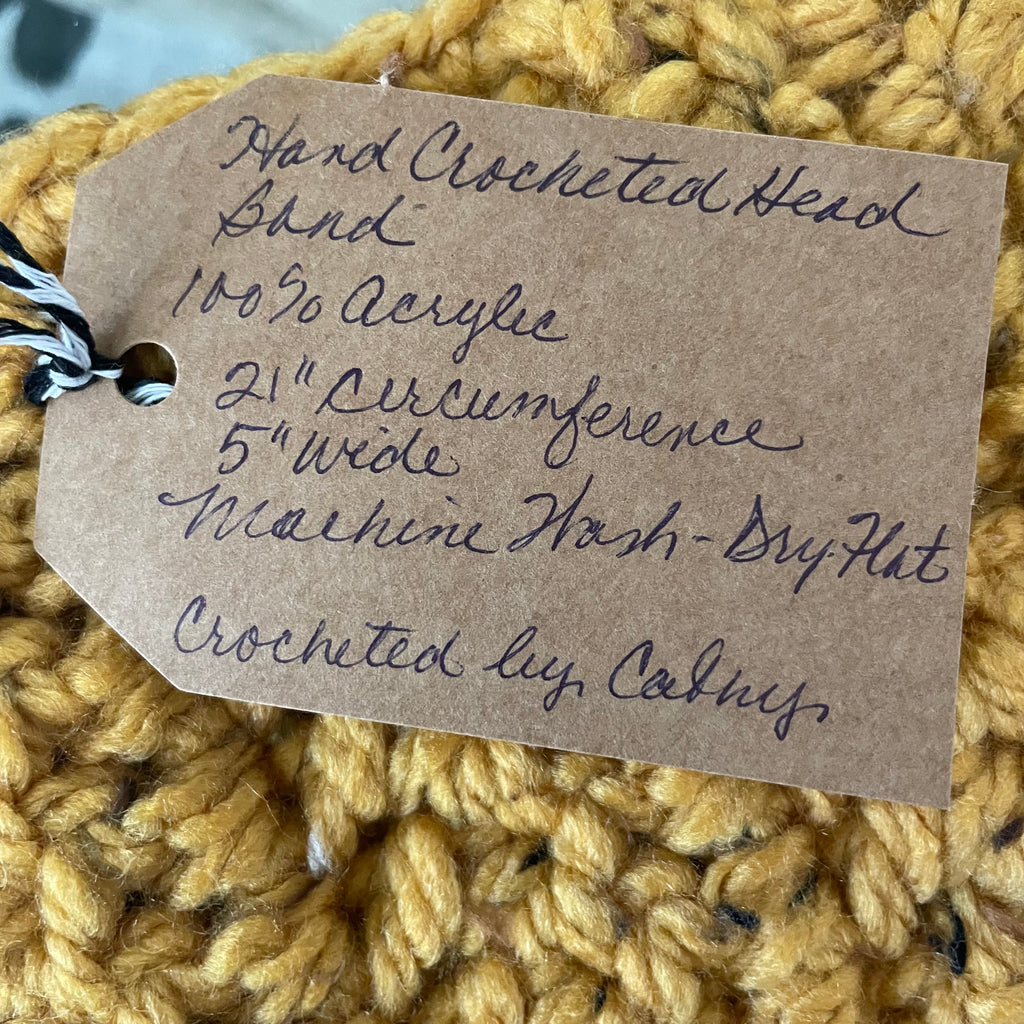 Hand Crocheted Head
Band
100% Acrylic
21" Circumference
5" Wide
Machine Wash - Dry Flat
Crocheted by Cathy